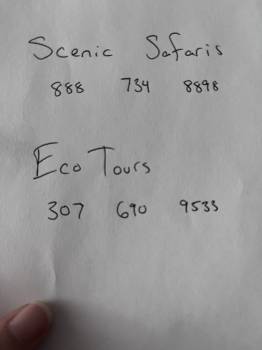 Scenic Safaris
888 734 8898
Eco Tours
307 690 9533